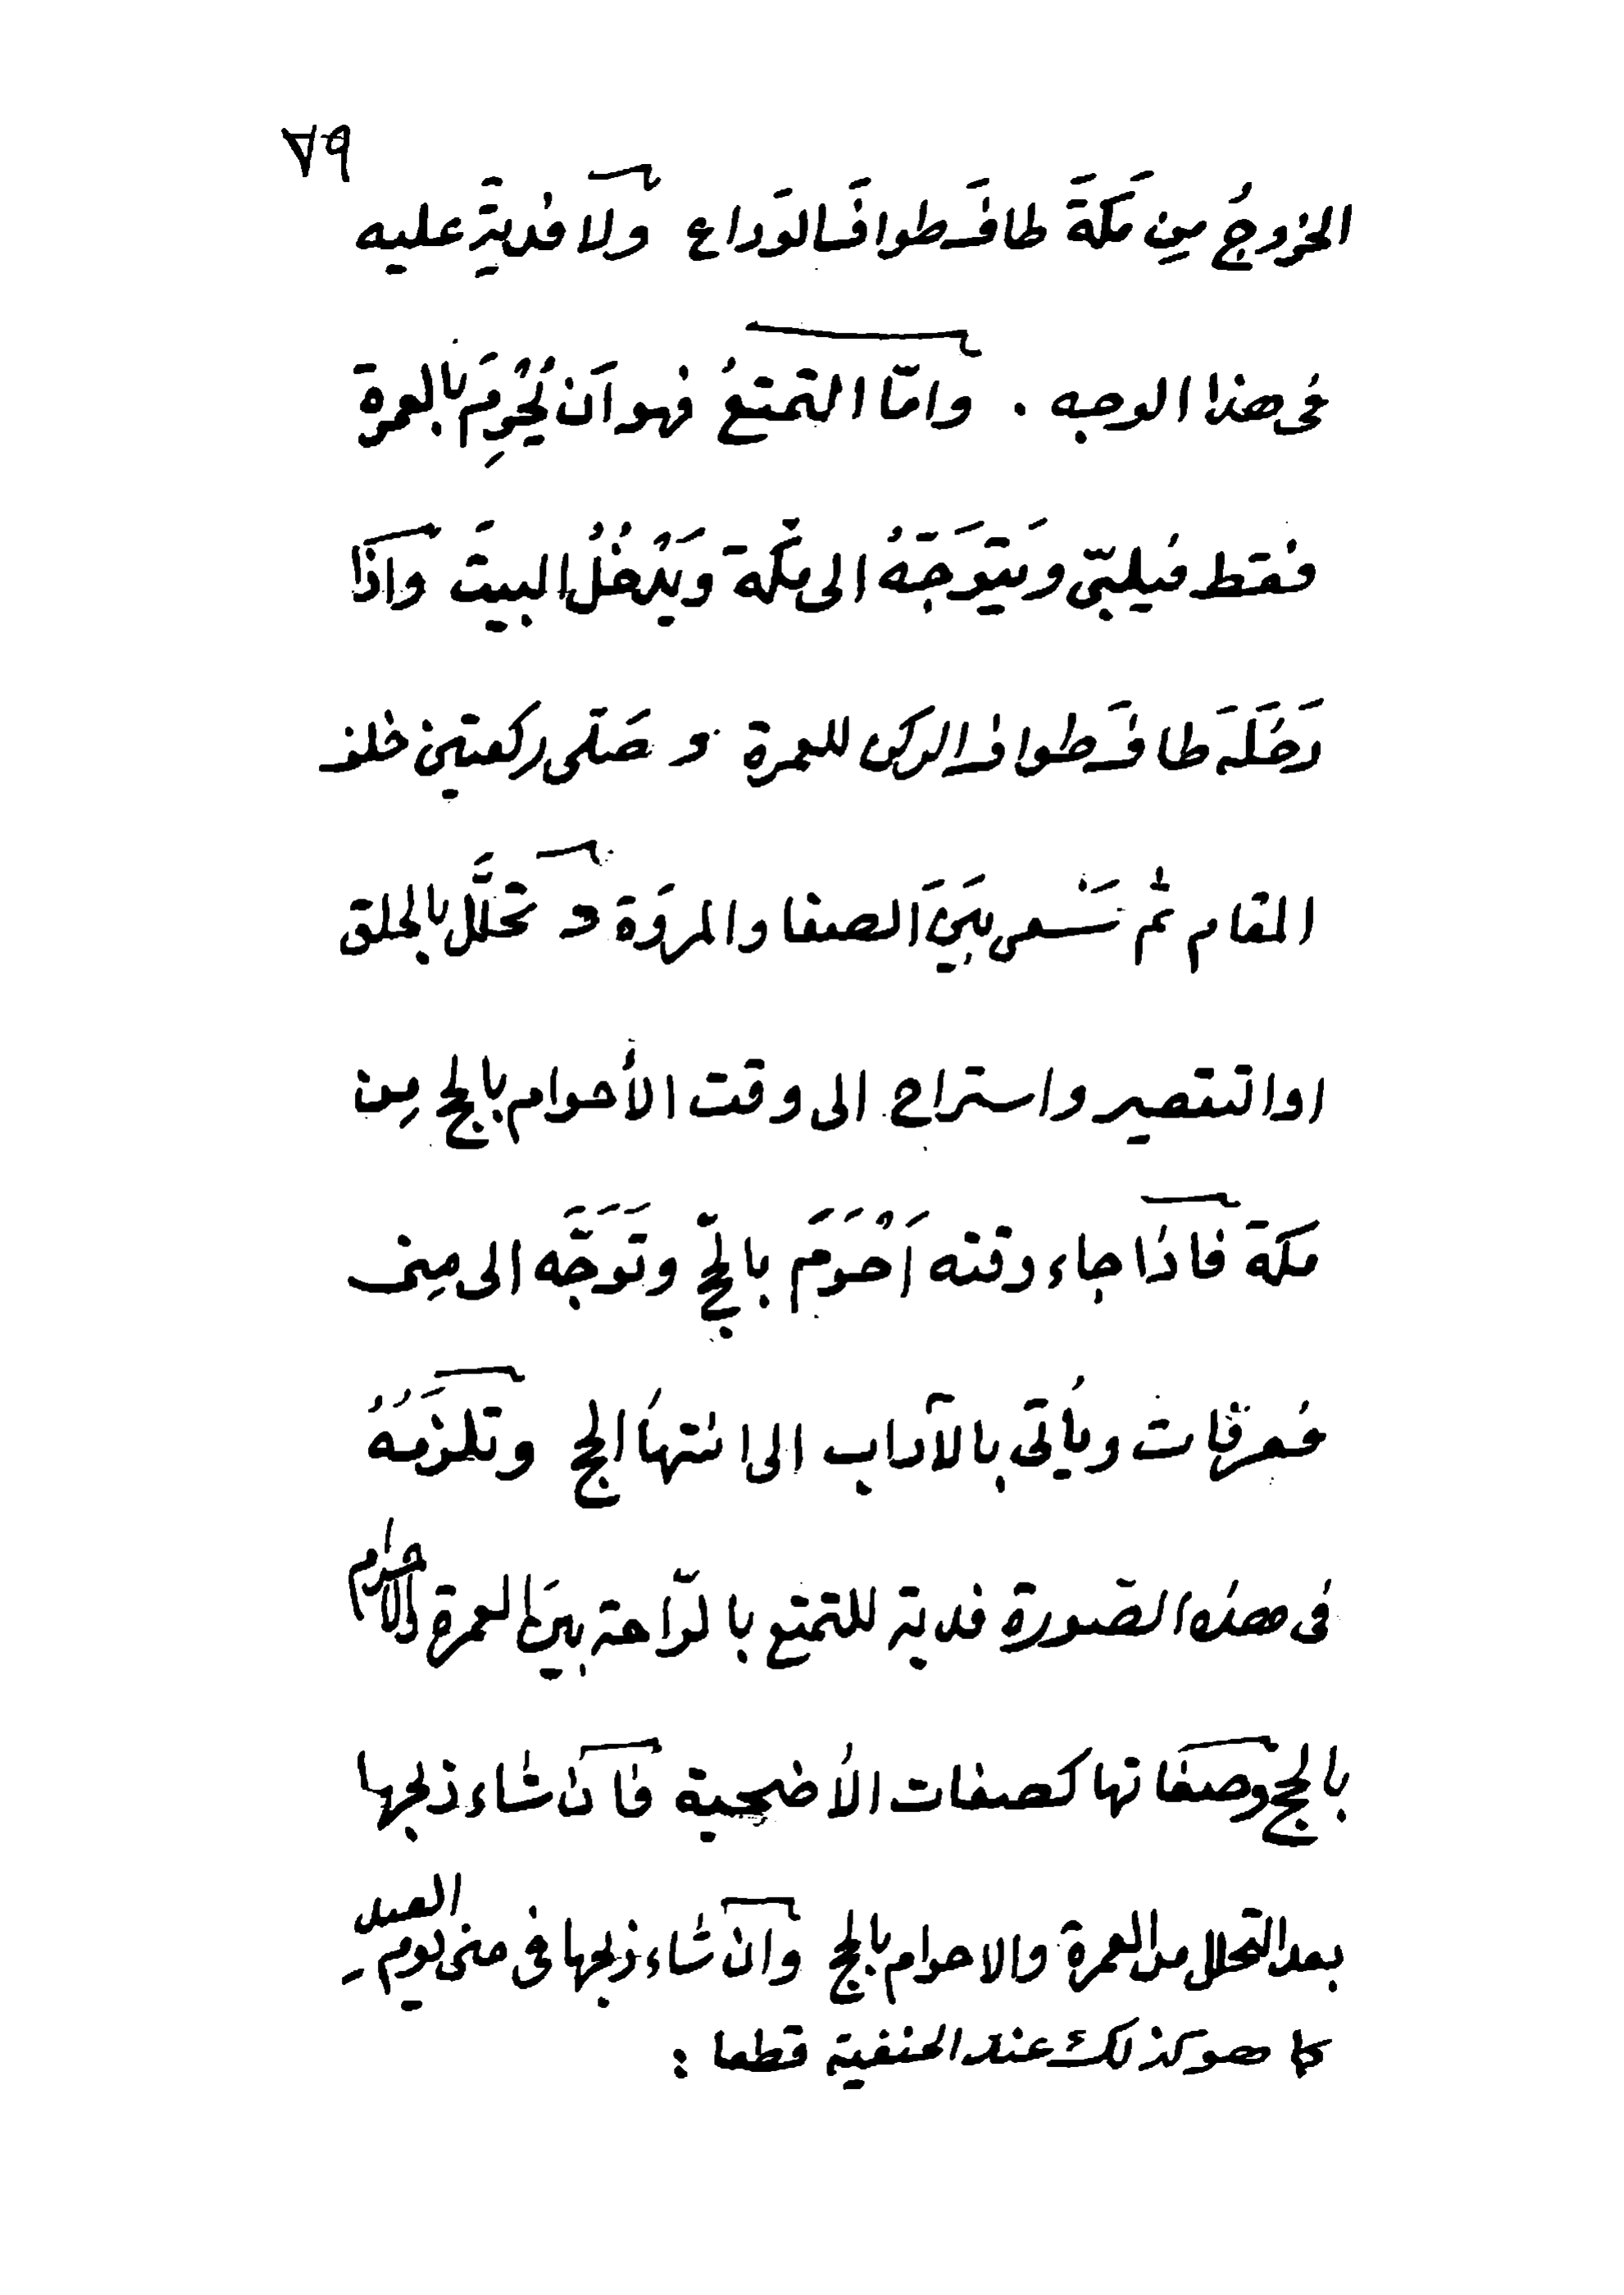 ٧٩
الخروجُ مِن مَكةَ طافَ طوافَ الوَداع ولا فديةَ عليه
فى هذا الوجه . وامّا التمتعُ فهو اَن يُحْرِمَ بالعمرة
فقط فيلبّى ويتَوَجَّهُ الى مكّة ويَدْخُلُ البيتَ واذا
دَخَلَهَ طافَ طواف الركن للعمرة و صَلّى ركعتين خلف
المقام ثم سَعى بَينَ الصفا والمروَة و تحلَّلَ بالحلق
او التقصير واستراح الى وقت الأحرام بالحج مِن
مكة فاذا جاء وقته اَحْرَمَ بالحجّ وتَوَجَّه الى مِنى
فعرفات ويأتى بالآداب الى انتهاُ الحج وتلزَمُهُ
فى هذه الصّورة فدية للتمتع بالرّاحة بينَ العمرة والاحرام
بالحج وصفاتها كصفات الأضحية فان شاء ذبحها
بعد التحلل من العمرة والاحرام بالحج وان شاء ذبحها فى منى يوم العيد
كما هو كذلك عند الحنفية قطعا :